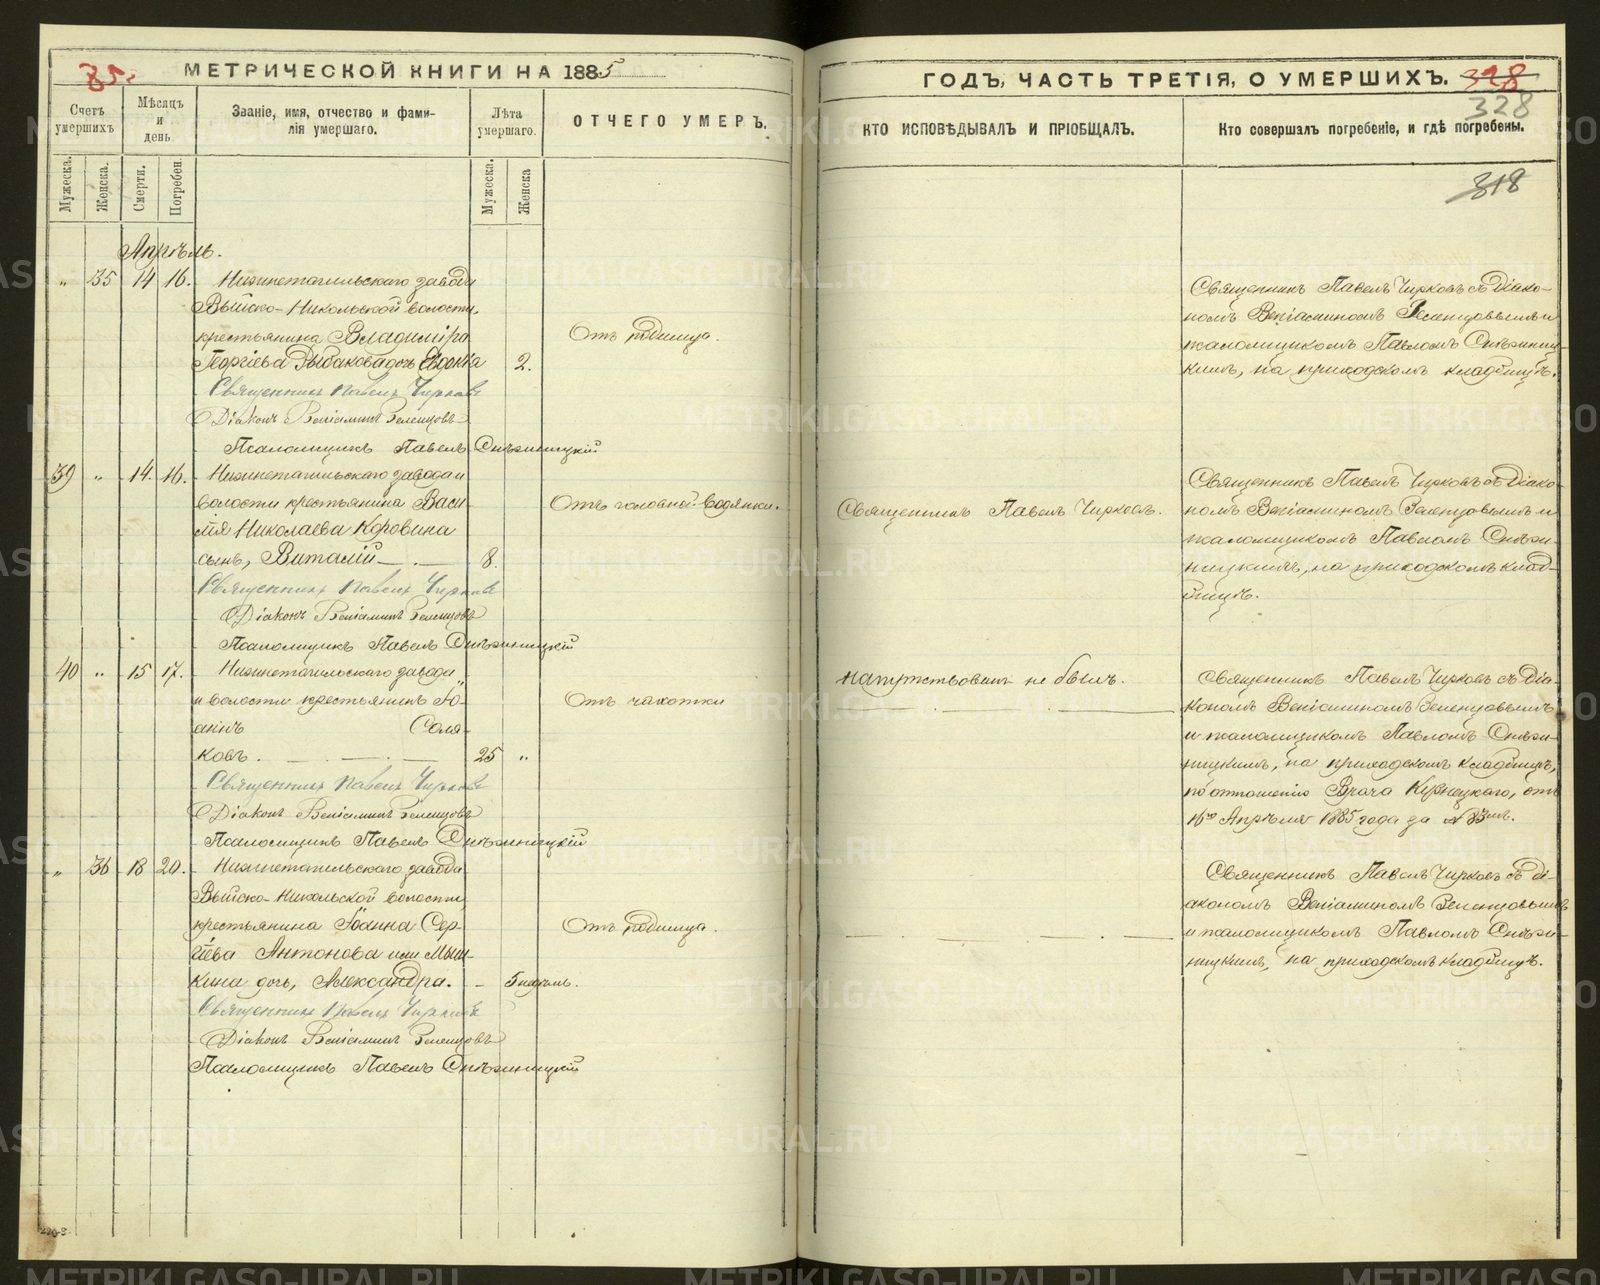 35.
МЕТРИЧЕСКОЙ КНИГИ НА 1885
Счетъ умершихъ
Мѣсяцъ и день
Званіе, имя, отчество и фамилія умершаго.
Лѣта умершаго.
ОТЧЕГО УМЕРЪ.
Мужеска.
Женска.
Смерти.
Погребен.
Мужеска.
Женска
Апрѣль.
" 35 14 16. Нижнетагильскаго завода
Выйско-Никольской волости,
крестьянина Владиміра
Отъ родимца.
Георгіева Рыбакова дочь Евдокія 2.
Священникъ Павелъ Чирковъ
Діаконъ Веніаминъ Зеленцовъ
Псаломщикъ Павелъ Снѣжницкій
39 " 14. 16. Нижнетагильскаго завода и
волости крестьянина Васи-
Отъ головной водянки.
лія Николаева Коровина
сынъ, Виталій 8.
Священникъ Павелъ Чирковъ
Діаконъ Веніаминъ Зеленцовъ
Псаломщикъ Павелъ Снѣжницкій
40 " 15 17. Нижнетагильскаго завода
и волости крестьянинъ Іо-
Отъ чахотки
аннъ Соля-
ковъ. 25 "
Священникъ Павелъ Чирковъ
Діаконъ Веніаминъ Зеленцовъ
Псаломщикъ Павелъ Снѣжницкій
" 36 18 20. Нижнетагильскаго завода
Выйско-Никольской волости
крестьянина Іоанна Сер-
Отъ родимца.
гіева Антонова или Мыш-
кина дочь, Александра. - 5 недѣль.
Священникъ Павелъ Чирковъ
Діаконъ Веніаминъ Зеленцовъ
Псаломщикъ Павелъ Снѣжницкій
ГОДЪ, ЧАСТЬ ТРЕТІЯ, О УМЕРШИХЪ.
328
328
КТО ИСПОВѢДЫВАЛЪ И ПРІОБЩАЛЪ.
Кто совершалъ погребеніе, и гдѣ погребены.
318
Священникъ Павелъ Чирковъ съ діако-
номъ Веніаминомъ Зеленцовымъ и
псаломщикомъ Павломъ Снѣжниц-
кимъ, на приходскомъ кладбищѣ.
Священникъ Павелъ Чирковъ.
Священникъ Павелъ Чирковъ съ діако-
номъ Веніаминомъ Зеленцовымъ и
псаломщикомъ Павломъ Снѣж-
ницкимъ, на приходскомъ клад-
бищѣ.
напутствованъ не былъ.
Священникъ Павелъ Чирковъ съ діа-
кономъ Веніаминомъ Зеленцовымъ
и псаломщикомъ Павломъ Снѣж-
ницкимъ, на приходскомъ кладбищѣ,
по отношенію Врача Кузнецкаго, отъ
16го Апрѣля 1885 года за №
Священникъ Павелъ Чирковъ съ ді-
акономъ Веніаминомъ Зеленцовымъ
и псаломщикомъ Павломъ Снѣж-
ницкимъ, на приходскомъ кладбищѣ.
METRIKI.GASO-URAL.RU